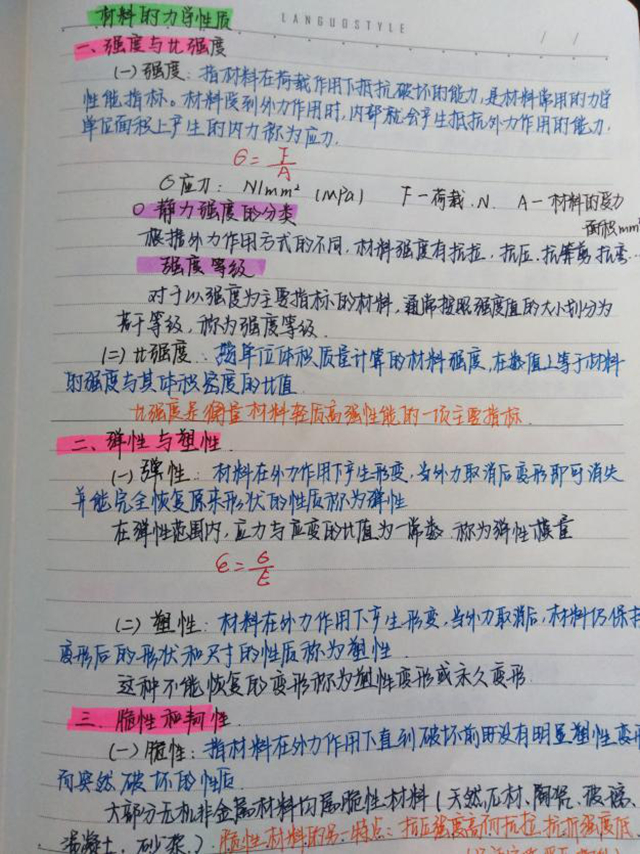 LANGUOSTYLE
/ /
材料的力学性质
一、强度与比强度
(一)强度：指材料在荷载作用下抵抗破坏的能力,是材料常用的力学
性能指标。材料受到外力作用时,内部就会产生抵抗外力作用的能力,
单位面积上产生的内力称为应力.
б=F/A
б应力: N/mm² (MPa) F-荷载.N. A-材料的受力
面积mm²
○ 静力强度的分类
根据外力作用方式的不同,材料强度有抗拉,抗压,抗剪,抗弯…
强度等级
对于以强度为主要指标的材料,通常按照强度值的大小划分为
若干等级,称为强度等级.
(二)比强度:按单位体积质量计算的材料强度,在数值上等于材料
的强度与其体积密度的比值
比强度是衡量材料轻质高强性能的一项主要指标.
二、弹性与塑性
(一)弹性：材料在外力作用下产生形变,当外力取消后变形即可消失
并能完全恢复原来形状的性质称为弹性
在弹性范围内,应力与应变的比值为一常数.称为弹性模量
E=б/ε
(二)塑性：材料在外力作用下产生形变,当外力取消后,材料仍保持
变形后的形状和尺寸的性质称为塑性
这种不能恢复的变形称为塑性变形或永久变形.
三.脆性和韧性.
(一)脆性：指材料在外力作用下直到破坏前并没有明显塑性变形
而突然破坏的性质.
大部分无机非金属材料均属脆性材料(天然石材、陶瓷、玻璃、
混凝土、砂浆.)脆性材料的另一特点:抗压强度高而抗拉.抗折强度低.